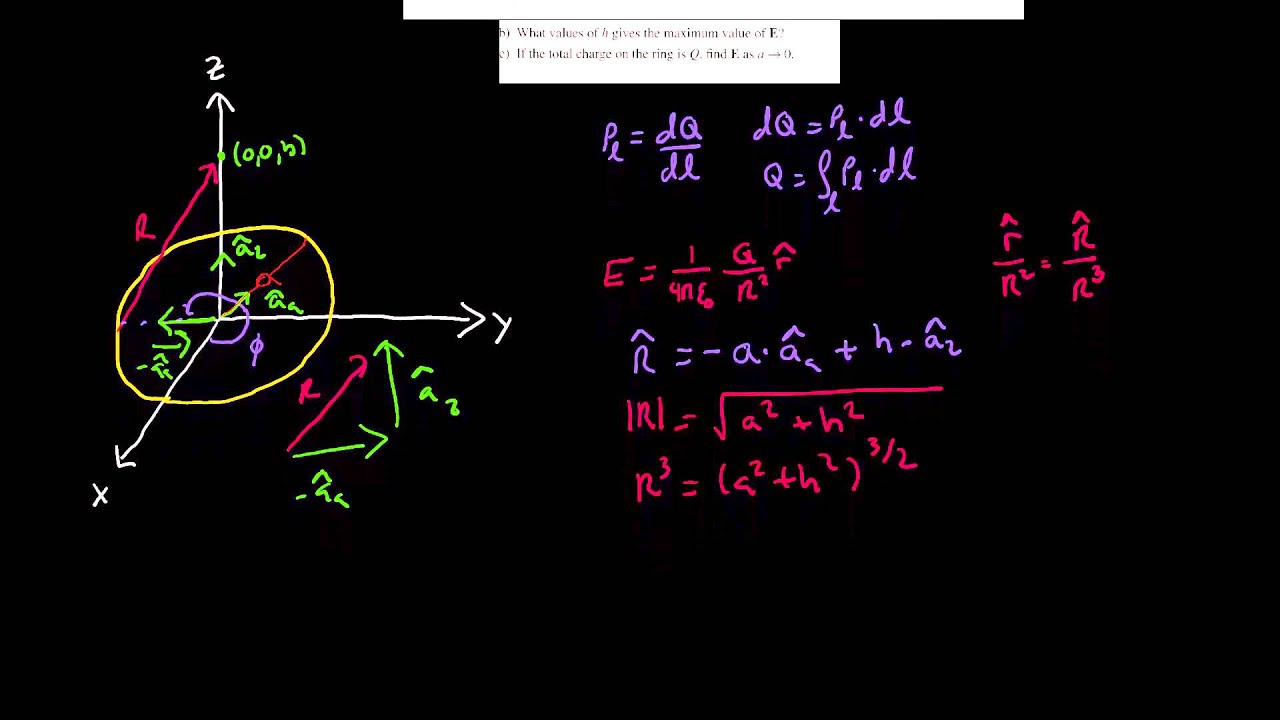 b) What values of h gives the maximum value of E?
c) If the total charge on the ring is Q, find E as a → 0.
z
(0,0,h)
R
â_z
â_a
-â_a
ϕ
y
x
R
â_z
-â_a
ρ_l = dQ/dl
dQ = ρ_l · dl
Q = ∫_l ρ_l · dl
E = 1/(4πε₀) Q/R² r̂
r̂/R² = R̂/R³
R̂ = -a · â_a + h · â_z
|R| = √(a² + h²)
R³ = (a² + h²)^(3/2)